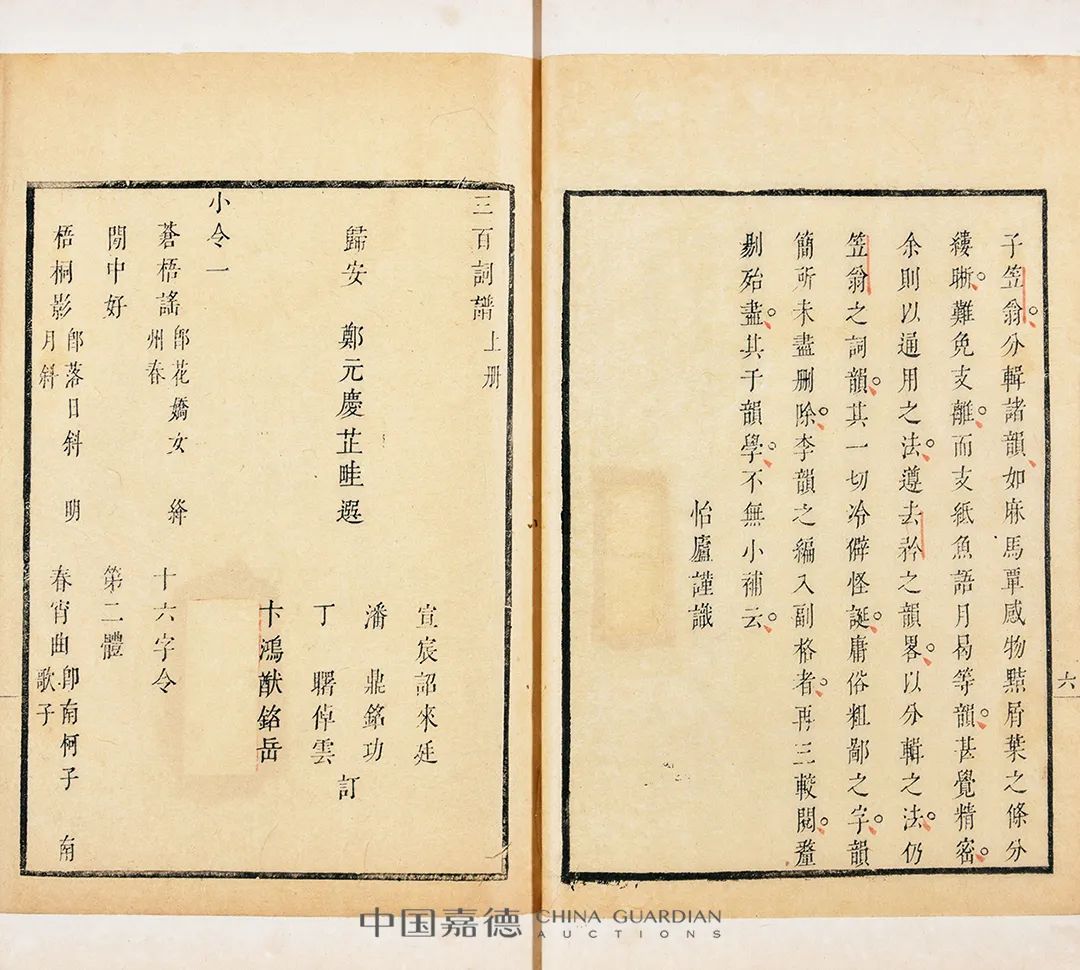 子笠翁分輯諸韻如麻馬覃感物點屑葉之條分
縷晰難免支離而支紙魚語月曷等韻甚覺精密
余則以通用之法遵去矜之韻畧以分輯之法仍
笠翁之詞韻其一切冷僻怪誕庸俗粗鄙之字韻
簡所未盡删除李韻之編入副格者再三較閱釐
剔殆盡其于韻學不無小補云
怡廬謹識
六
三百詞譜 上册
宣宸詔來廷
歸安 鄭元慶芷畦選 潘 鼎銘功 訂
丁 曙倬雲
卞鴻猷銘岳
小令一
蒼梧謠 卽花嬌女 絳州春 十六字令
閒中好 第二體
梧桐影 卽落日斜 明月斜 春宵曲 卽南柯子 南歌子
中国嘉德 CHINA GUARDIAN
AUCTIONS